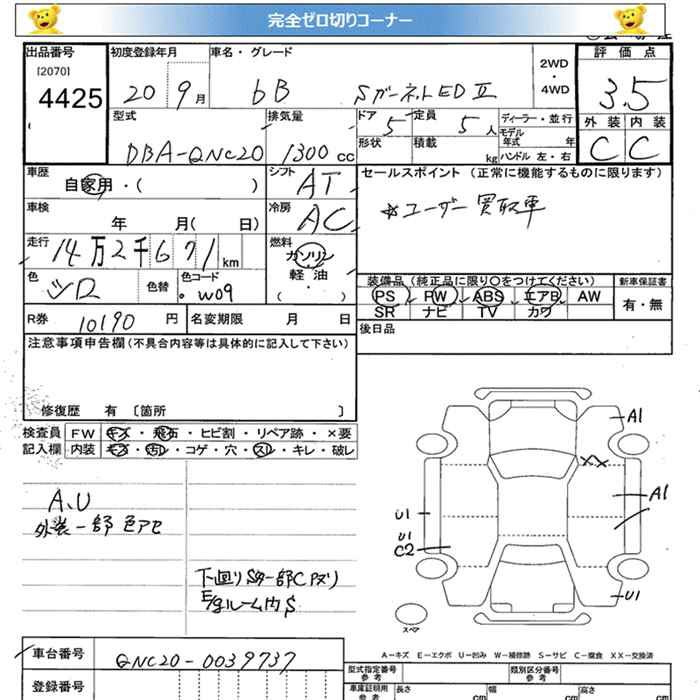 完全ゼロ切りコーナー
出品番号
[2070]
4425
初度登録年月
20 9月
車名・グレード
bB SガーネットED Ⅱ
2WD
・
4WD
評価点
3.5
外装 内装
C C
型式
DBA-QNC20
排気量
1300 cc
ドア
5
定員
5人
形状
積載
kg
ディーラー・並行
モデル年式 年
ハンドル 左・右
車歴
自家用・( )
シフト
AT
セールスポイント (正常に機能するものに限ります)
※ユーザー買取車
車検
年 月( 日)
冷房
AC
走行
14万2千671km
燃料
ガソリン
軽油
(・)
色
シロ
色替
色コード
W09
装備品 (純正品に限り○をつけてください)
PS PW ABS エアB AW
SR ナビ TV カワ
新車保証書
有・無
R券
10190 円
名変期限 月 日
後日品
注意事項申告欄 (不具合内容等は具体的に記入して下さい)
修復歴 有〔箇所 〕
検査員 FW キズ・飛石・ヒビ割・リペア跡・×要
記入欄 内装 キズ・汚レ・コゲ・穴・スレ・キレ・破レ
A、U
外装一部色アセ
下回りSタ一部Cアリ
E/gルーム内S
A1
XX
A1
U1
U1
C2
U1
スペア
A-キズ E-エクボ U-凹み W-補修跡 S-サビ C-腐食 XX-交換済
車台番号
QNC20-0039737
登録番号
型式指定番号
参考
類別区分番号
参考
車庫証明用
参考
長さ cm
幅 cm
高さ cm